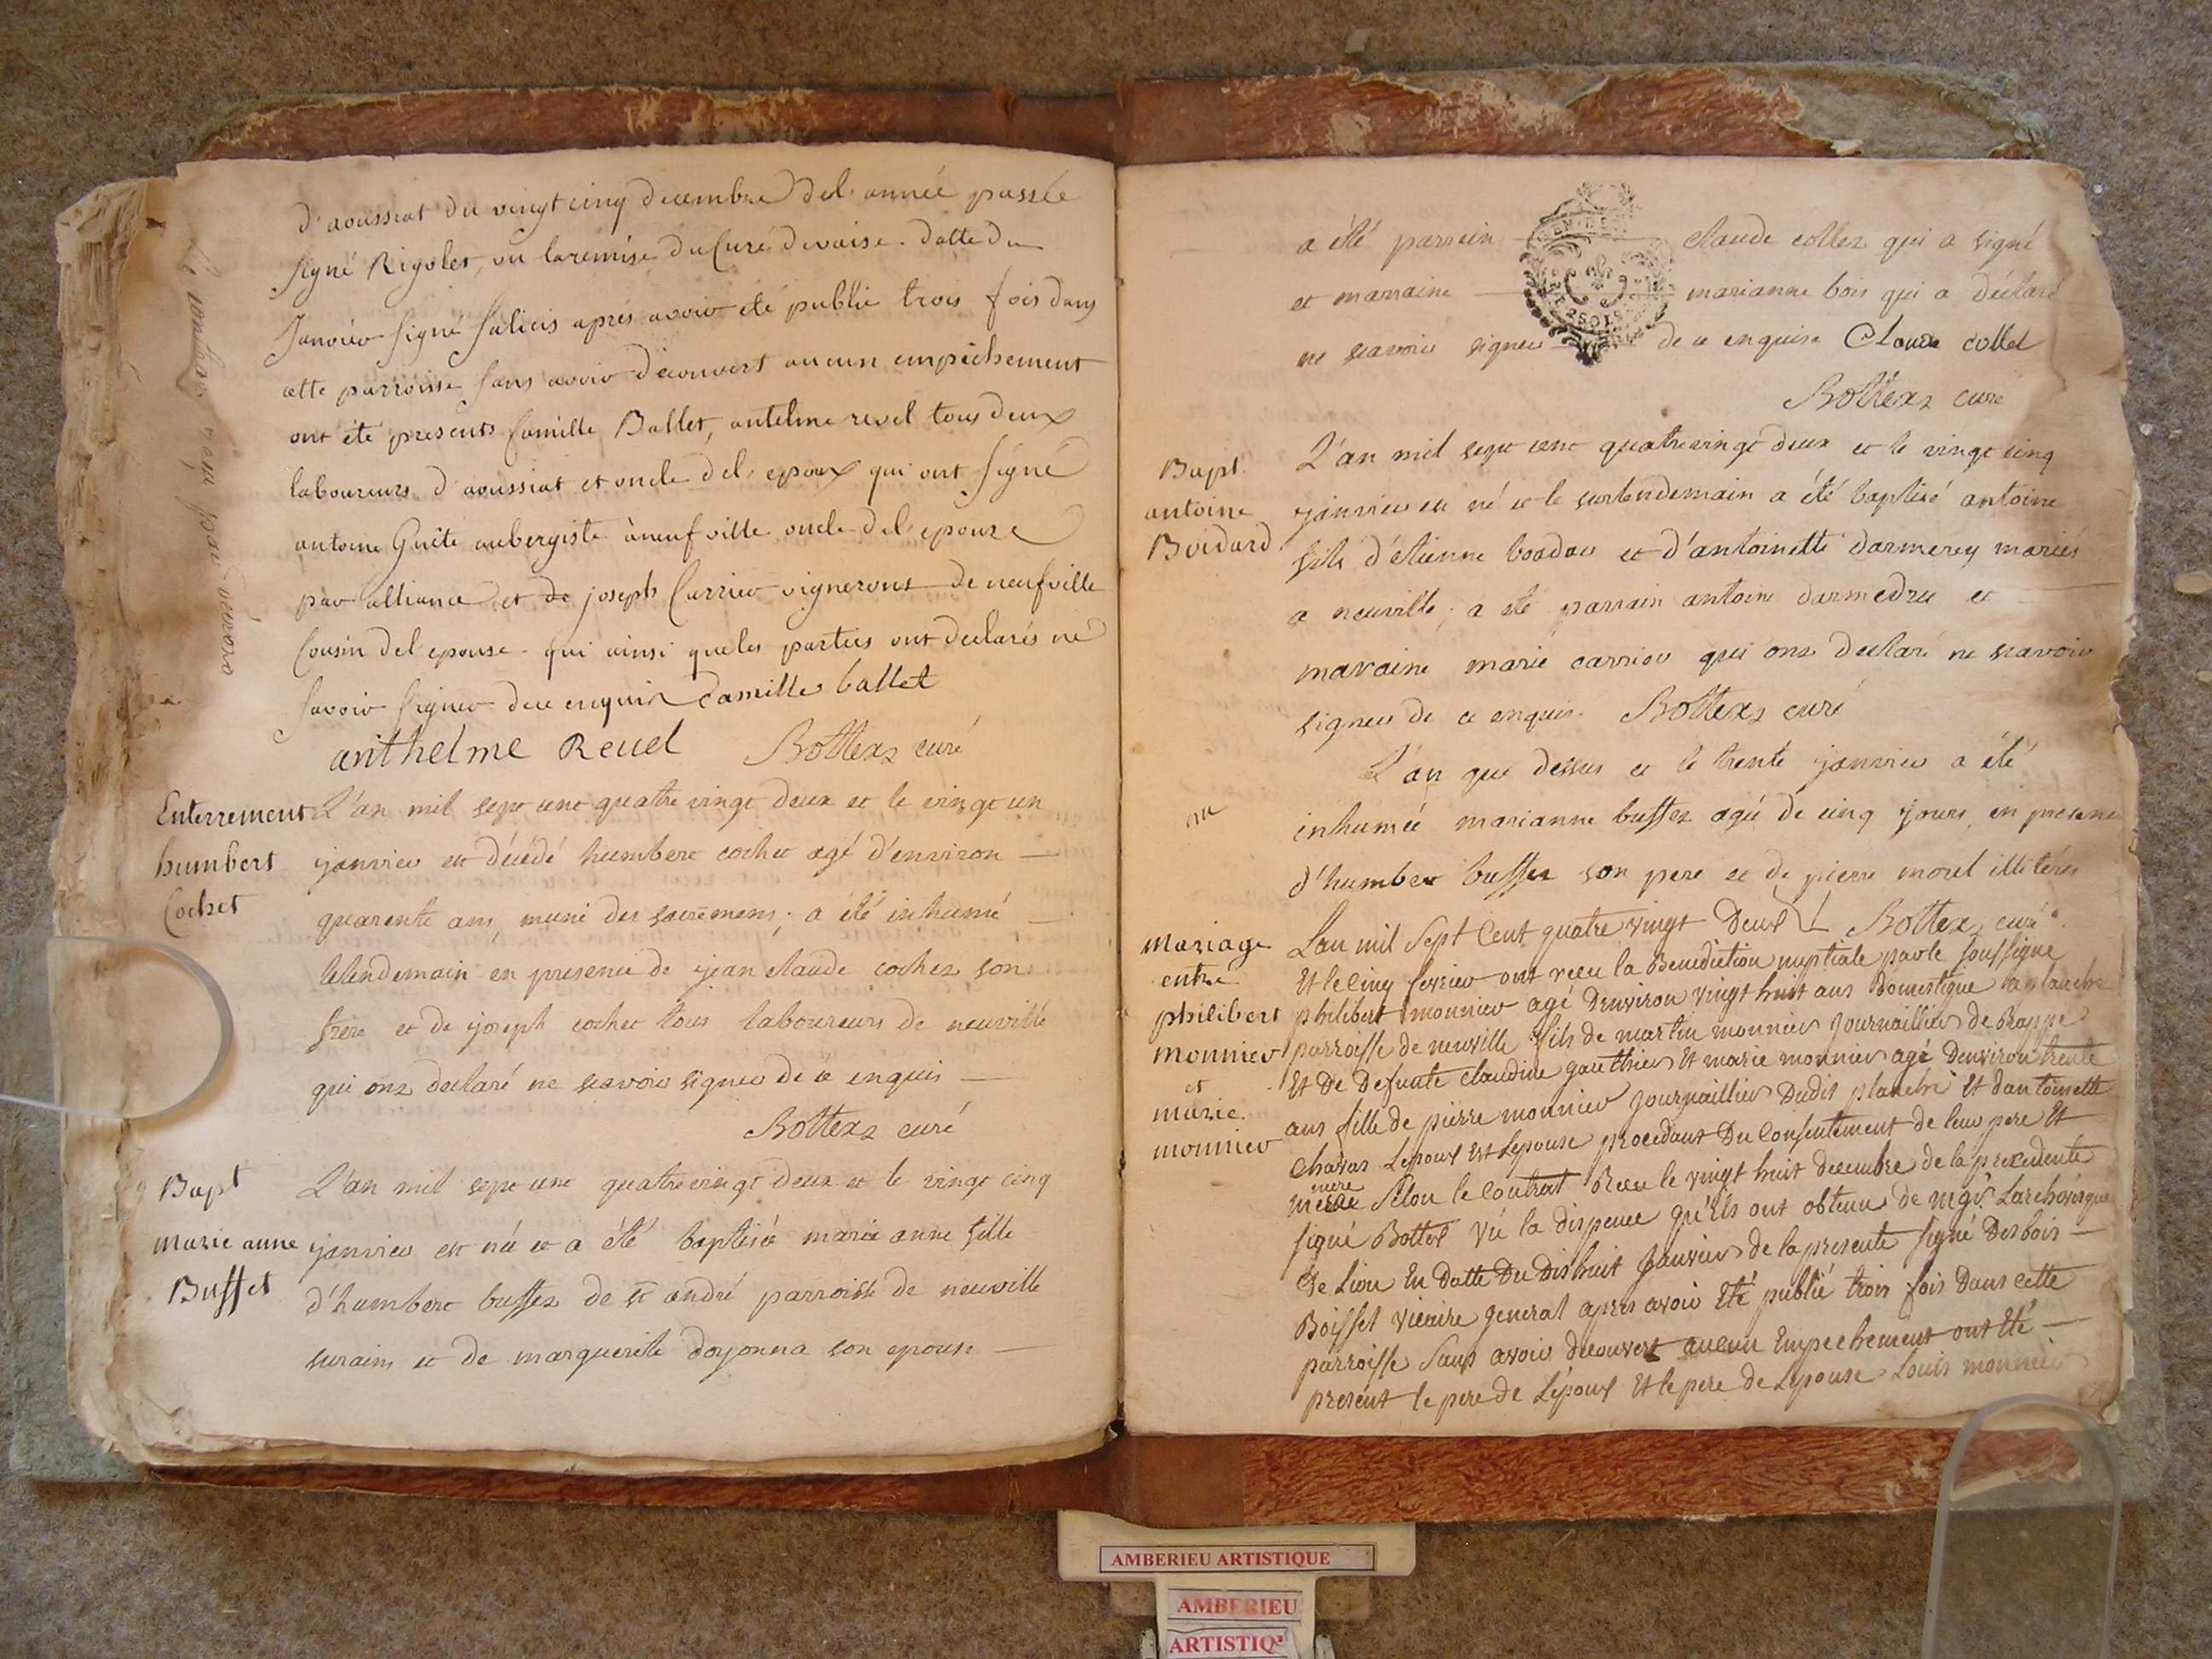 d'aoussiat du vingt cinq decembre del'année passée
signé Rigolet, vu laremise du Curé devaise datte du
Janvier signé falicis aprés avoir été publié trois fois dans
cette parroisse sans avoir decouvert aucun empêchement
ont été presents Camille Ballet, antelme revel tous deux
laboureurs d'aoussiat et oncle del'epoux qui ont signé
antoine Guête aubergiste àneufville oncle del'epouse
par alliance et de joseph Carrier vignerons de neufville
Cousin del'epouse qui ainsi queles parties ont declarés ne
savoir signer dece enquis Camille ballet
anthelme Reuel Bottex curé
Enterrement
humbert
Cochet
L'an mil sept cent quatre vingt deux et le vingt un
janvier est décédé humbert cochet agé d'environ
quarente ans, muni des sacremens; a été inhumé
lelendemain en presence de jean claude cochet son
frère et de joseph cochet tous laboureurs de neuville
qui ont declaré ne scavoir signer de ce enquis
Bottex curé
Bapt
marie anne
Buffet
L'an mil sept cent quatre vingt deux et le vingt cinq
janvier est née et a été baptisée marie anne fille
d'humbert buffet de st andré parroisse de neuville
surains et de marguerite doyonna son epouse
a été parrein claude collet qui a signé
et marraine marianne bois qui a déclaré
ne scavoir signer de ce enquise Claude collet
Bottex curé
Bapt
antoine
Boidard
L'an mil sept cent quatrevingt deux et le vingt cinq
janvier est né et le surlendemain a été baptisé antoine
fils d'etienne et d'antoinette mariés
a neuville; a été parrain antoine darmedru et
maraine marie carrier qui ont declaré ne scavoir
signer de ce enquis. Bottex curé
L'an que dessus et le trente janvier a été
inhumée marianne buffet agée de cinq jours, en presence
d'humber buffet son pere et de pierre morel illiterés
Bottex curé
mariage
entre
philibert
monnier
et
marie
monnier
Lan mil Sept Cent quatre vingt Deux
Et le cinq fevrier ont recu la Benediction nuptiale par le soussigné
philibert monnier agé Denviron vingt huit ans Domestique aplanche
parroisse de neuville fils de martin monnier Journaillier de
Et De Defunte claudine gauthier Et marie monnier agé Denviron trente
ans fille de pierre monnier Journaillier Dudit planche Et dantoinette
Chavas Lepoux Et Lepouse procedant Du Consentement de leur pere Et
mere
Selon le Contrat Recu le vingt huit decembre de la precedente
signé Bottex vu la dispence qu'ils ont obtenu de mgr. Larchevêque
De Lion En Datte Du Dishuit Janvier de la presente signé Desbois
Boisset vicaire general apres avoir Eté publié trois fois Dans Cette
parroisse Sans avoir decouvert aucun Empechement ont Eté
present le pere de Lépoux Et le pere de Lepouse Louis monnier
AMBERIEU ARTISTIQUE
AMBERIEU
ARTISTIQ